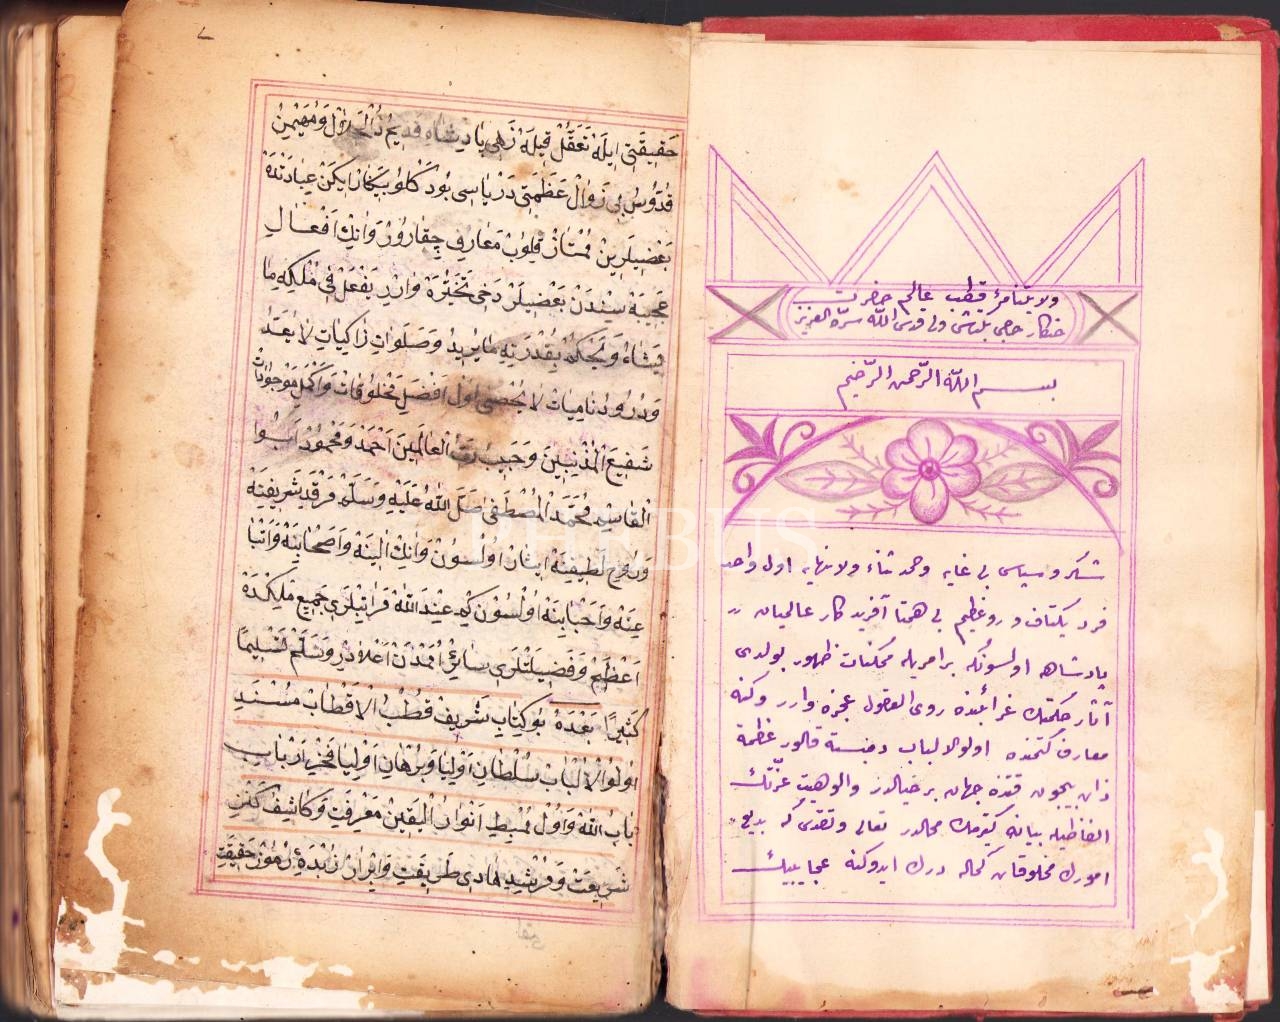 ولایتنامۀ قطب عالم حضرت
خنكار حاجی بكتاش ولی قدس اللّٰه سرّه العزیز
بسـم اللّٰه الرّحمن الرّحیم
شكر و سپاس بی غایه و حمد ثناء ولا نهایه اول واحد
فرد یكتاف و عظیم بی همتا آفریدكار عالمیان
پادشاه اولسونكه بر امریله ممكنات ظهور بولدی
آثار حكمتك غرائبنده ذوی العقول عجزه وارر وكنه
معارف كتمنده اولوالالباب دمبسته قالور عظمة
ذات بیچون جهان بر خیالدر والوهیت عزّتك
الفاظیله بیانه كتورمك محالدر تعالی وتقدس كه بدیع
امورك مخلوقات كماله درك ایدوكنه عجایبیك
حَقِیقَتِی اِیلَهْ تَعَقُّلْ قِیلَهْ زَهِی پَادِشَاهِ قَدِیمْ ذُو الْجَلَالْ وَمُهَیْمِنْ
قُدُّوسْ بِی زَوَالْ عَظَمَتِی دَرْیَاسِی بُودَكْلُو بِیكَرَانْ اِیكَنْ عِبَادَتِنْدَهْ
بَعْضِیلَرِینْ مُمْتَازْ قُلُوبْ مَعَارِفِ چِقَارُورْ وَانِكْ اَفْعَالِ
عَجِیبَهْ سِنْدَنْ بَعْضِیلَرْ دَخِی تَحَیُّرَهْ وَارِرْ یَفْعَلُ فِی مُلْكِهِ مَا
یَشَاءُ وَیَحْكُمُ بِقُدْرَتِهِ مَا یُرِیدُ وَصَلَوَاتِ زَاكِیَاتِ لَا یُعَدْ
وَدُرُودِ نَامِیَاتْ لَا یُحْصَی اُولْ اَفْضَلِ مَخْلُوقَاتْ وَاَكْمَلِ مَوْجُودَاتْ
شَفِیعَ الْمُذْنِبِینَ وَحَبِیبِ رَبِّ الْعَالَمِینَ اَحْمَدْ وَمَحْمُودْ اَبُوا
الْقَاسِمِ مُحَمَّدِ الْمُصْطَفَی صَلَّ اللّٰهُ عَلَیْهِ وَسَلَّمَ مَرْقَدِ شَرِیفِنَهْ
وَرُوحِ لَطِیفِنَهْ اِیثَارْ اُولْسُونْ وَانِكْ اٰلِینَهْ وَاَصْحَابِنَهْ وَاَتْبَا
عِنَهْ وَاَحْبَابِنَهْ اُولْسُونْ كِهْ عِنْدَ اللّٰهْ قَرَابَتْلَرِی جَمِیعِ مَلَكْدَهْ
اَعْظَمْ وَفَضِیلَتْلَرِی سَائِرْ اُمَمْدَنْ اَعْلَادِرْ وَسَلِّمْ تَسْلِیمًا
كَثِیرًا بَعْدَهُ بُو كِتَابِ شَرِیفْ قُطْبُ الْاَقْطَابْ مُسْنَدِ
اُولُوا الْاَلْبَابْ سُلْطَانِ اَوْلِیَا وَبُرْهَانِ اَوْلِیَا فَخْرِ اَرْبَابِ
بَابِ اللّٰهْ وَاُولْ مُحِیطِ اَنْوَارُ الْیَقِینْ مَعْرِفَتْ وَكَاشِفِ كَنْزِ
شَرِیعَتْ وَمُرْشِدِ هَادِی طَرِیقَتْ وَاَبْرَارْ زُبْدَۀِ رُمُوزِ حَقِیقَتْ
PHEBUS